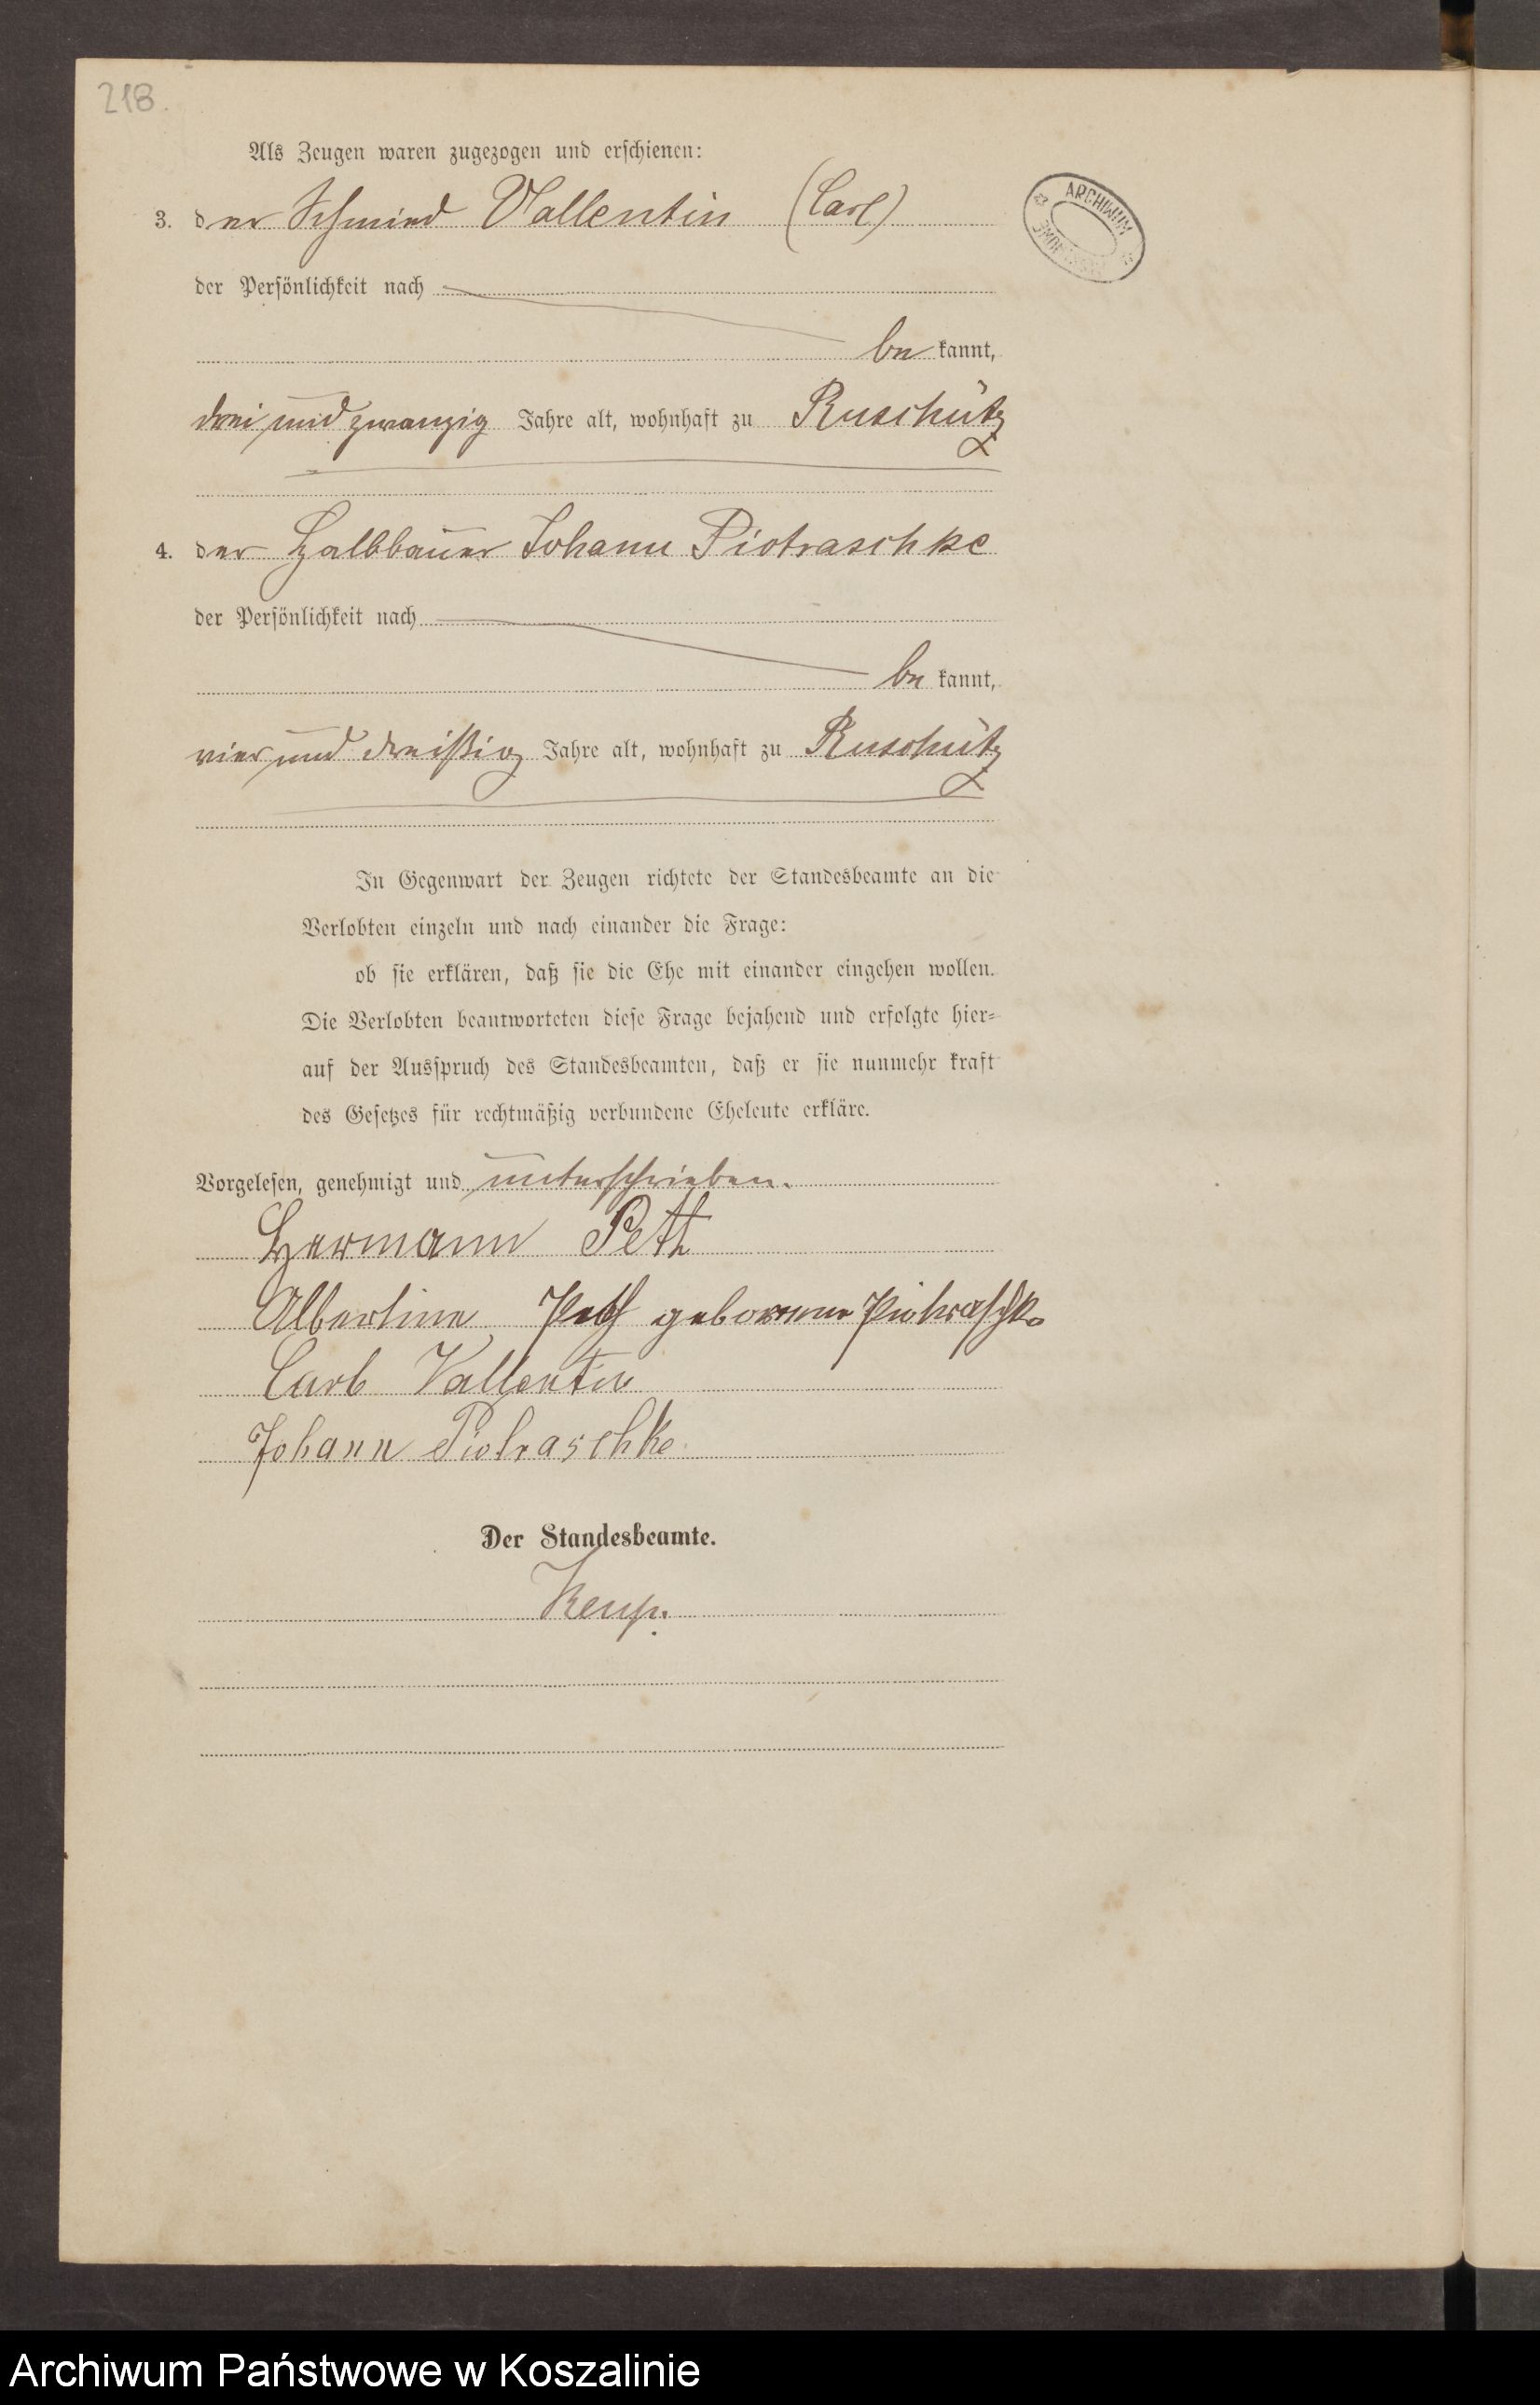 218.
Als Zeugen waren zugezogen und erschienen:
ARCHIWUM
3. der Schmied Vallentin (Carl)
der Persönlichkeit nach
be kannt,
drei und zwanzig Jahre alt, wohnhaft zu Ruschütz
4. der Halbbauer Johann Piotraschke
der Persönlichkeit nach
be kannt,
vier und dreißig Jahre alt, wohnhaft zu Ruschütz
In Gegenwart der Zeugen richtete der Standesbeamte an die
Verlobten einzeln und nach einander die Frage:
ob sie erklären, daß sie die Ehe mit einander eingehen wollen.
Die Verlobten beantworteten diese Frage bejahend und erfolgte hier-
auf der Ausspruch des Standesbeamten, daß er sie nunmehr kraft
des Gesetzes für rechtmäßig verbundene Eheleute erkläre.
Vorgelesen, genehmigt und unterschrieben.
Hermann Peth
Albertine Peth geborenne Piotraschke
Carl Vallentin
Johann Piotraschke
Der Standesbeamte.
Archiwum Państwowe w Koszalinie